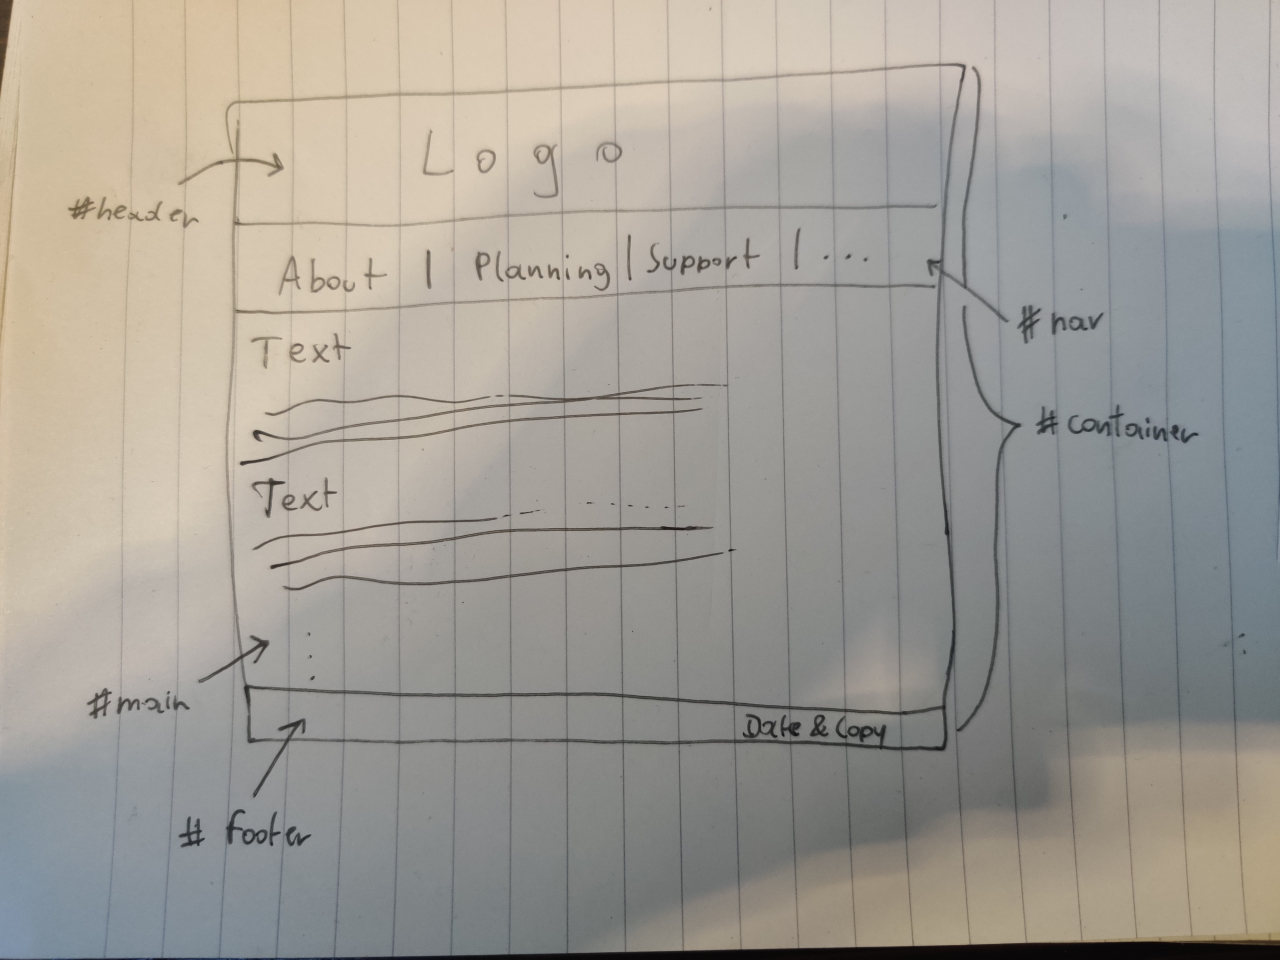 Logo
#header
About | Planning | Support | ...
#nav
Text
#container
Text
#main
Date & Copy
# footer